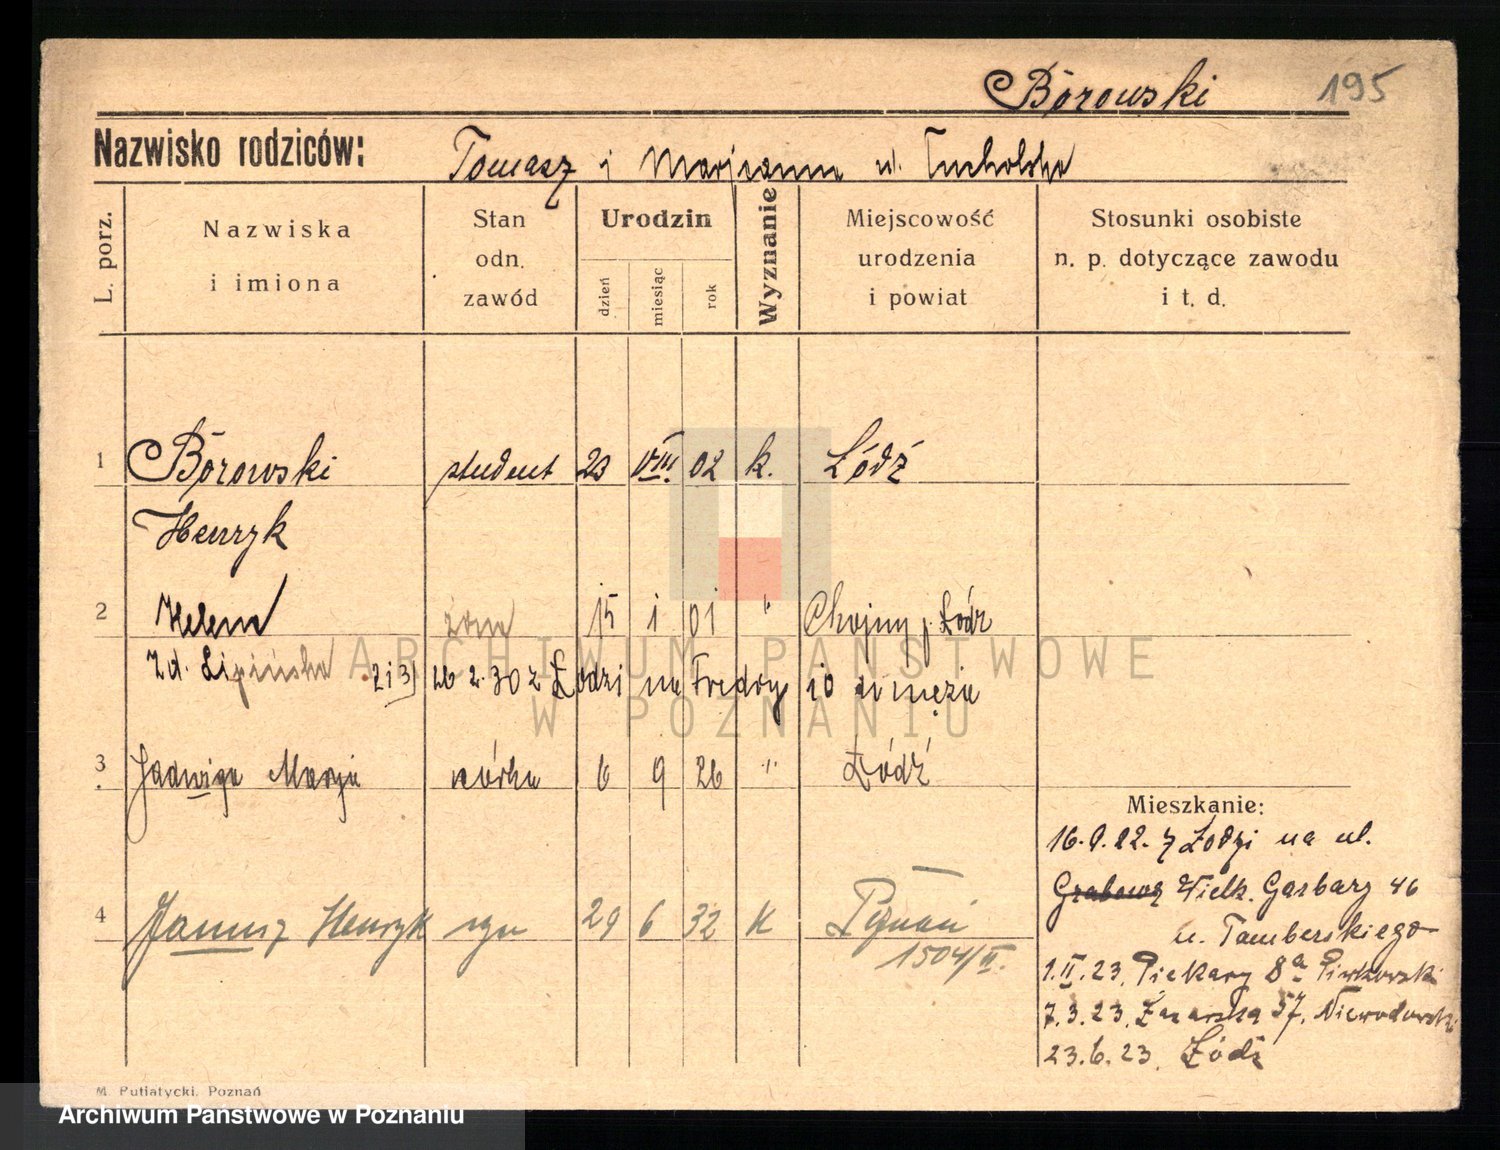 Borowski 195
Nazwisko rodziców: Tomasz i Marjanna ul. Tucholska
L. porz.
Nazwiska i imiona
Stan odn. zawód
Urodzin
dzień
miesiąc
rok
Wyznanie
Miejscowość urodzenia i powiat
Stosunki osobiste n. p. dotyczące zawodu i t. d.
1 Borowski student 23 VIII. 02 k. Łódź
Henryk
2 Helena żona 15 1 01 " Chojny p. Łódz
Zd. Lipińska 2 i 3) 26 2. 30 z Łodzi na Fredry 10 do męża
3 Jadwiga Marja córka 6 9 26 " Łódź
Mieszkanie:
16.9.22. z Łodzi na ul.
Grabowa Wielk. Garbary 46
u. Tamberskiego
4 Janusz Henryk syn 29 6 32 K Poznań
1504/II.
1.II.23. Piekary 8a Piwkowski
7.3.23. 57. Niewodowski
23.6.23. Łódź
M. Putiatycki. Poznań
ARCHIWUM PAŃSTWOWE
W POZNANIU
Archiwum Państwowe w Poznaniu